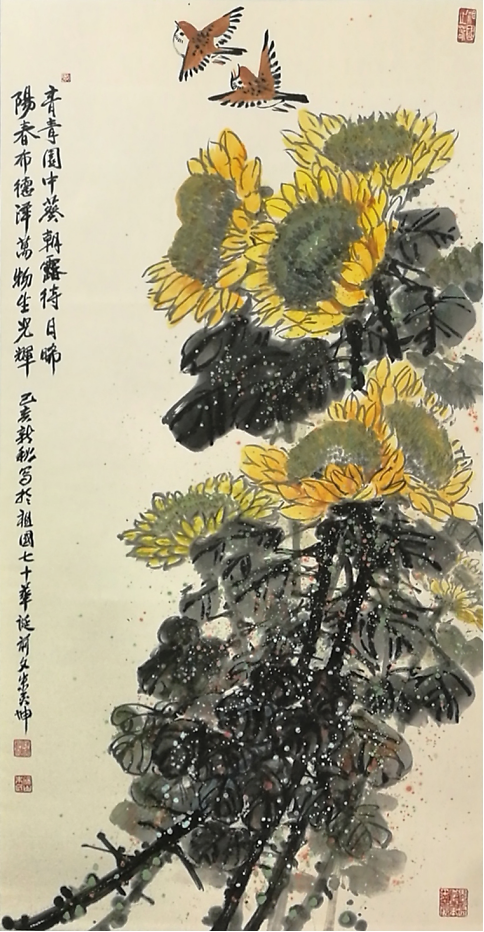 青青園中葵朝露待日晞
陽春布德澤萬物生光輝 己亥新秋寫於祖國七十華誕前夕